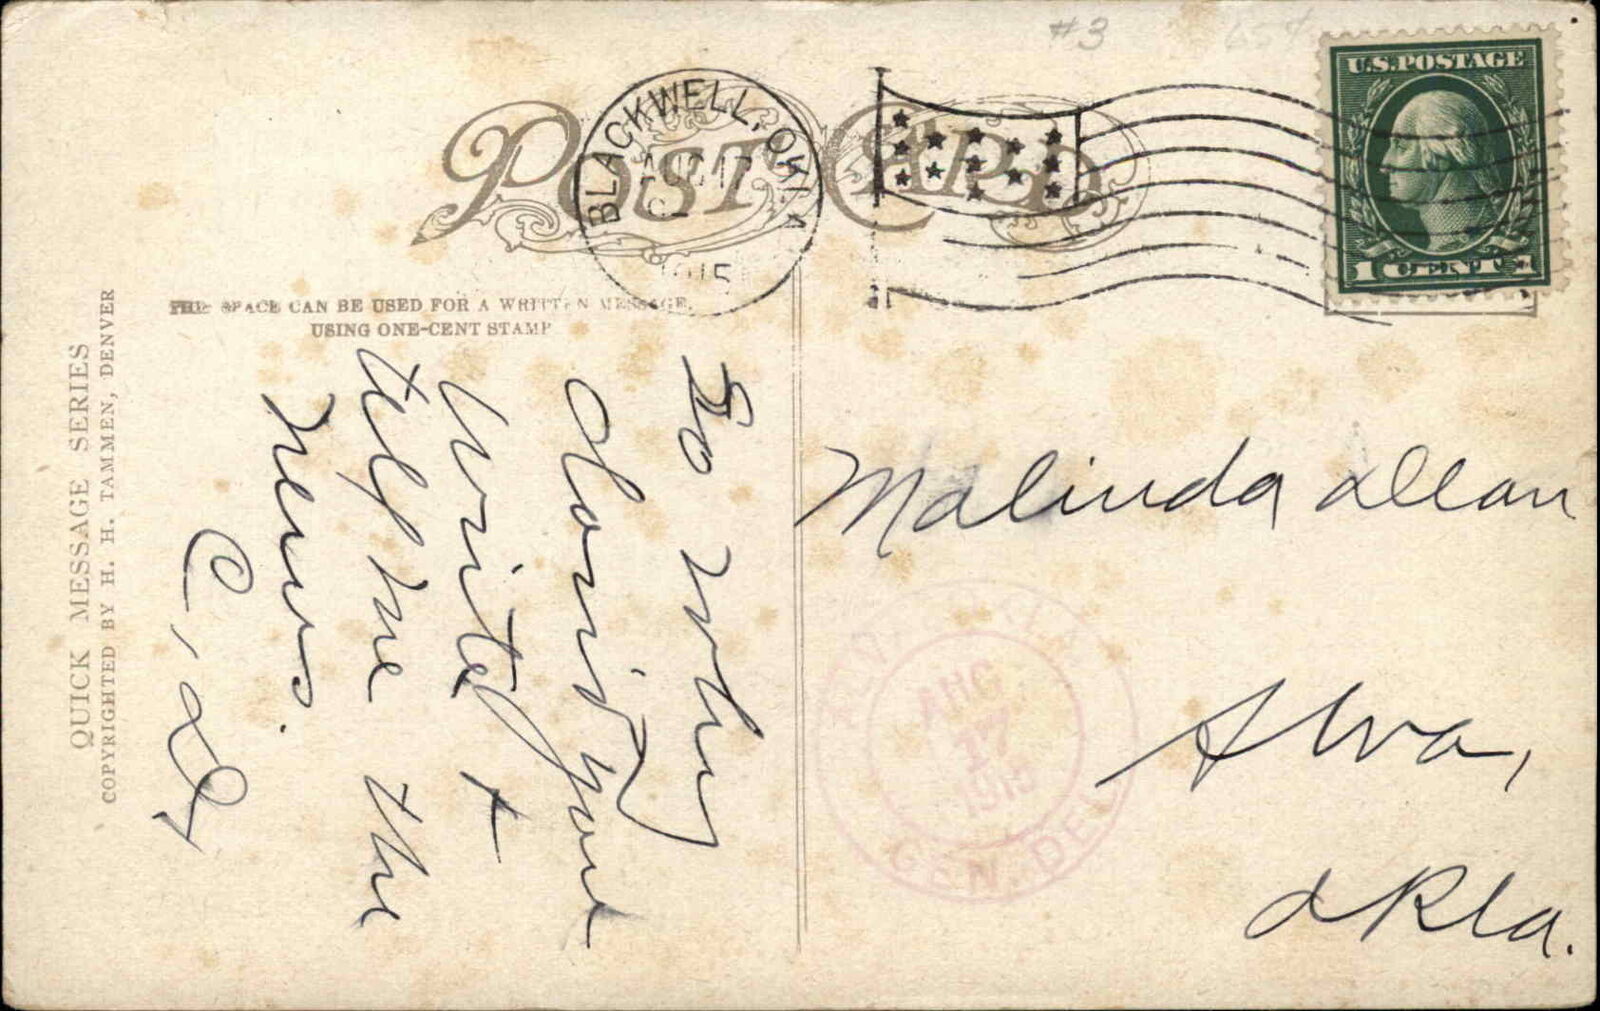 #3
65¢
U.S. POSTAGE
1 CENT 1
POST CARD
BLACKWELL, OKLA.
AUG 17
1915
THIS SPACE CAN BE USED FOR A WRITTEN MESSAGE,
USING ONE-CENT STAMP
QUICK MESSAGE SERIES
COPYRIGHTED BY H. H. TAMMEN, DENVER
So why
don't you
write +
tell me the
news.
C, D,
Malinda Dean
Alva,
Okla.
AUG
17
1915
GEN. DEL.